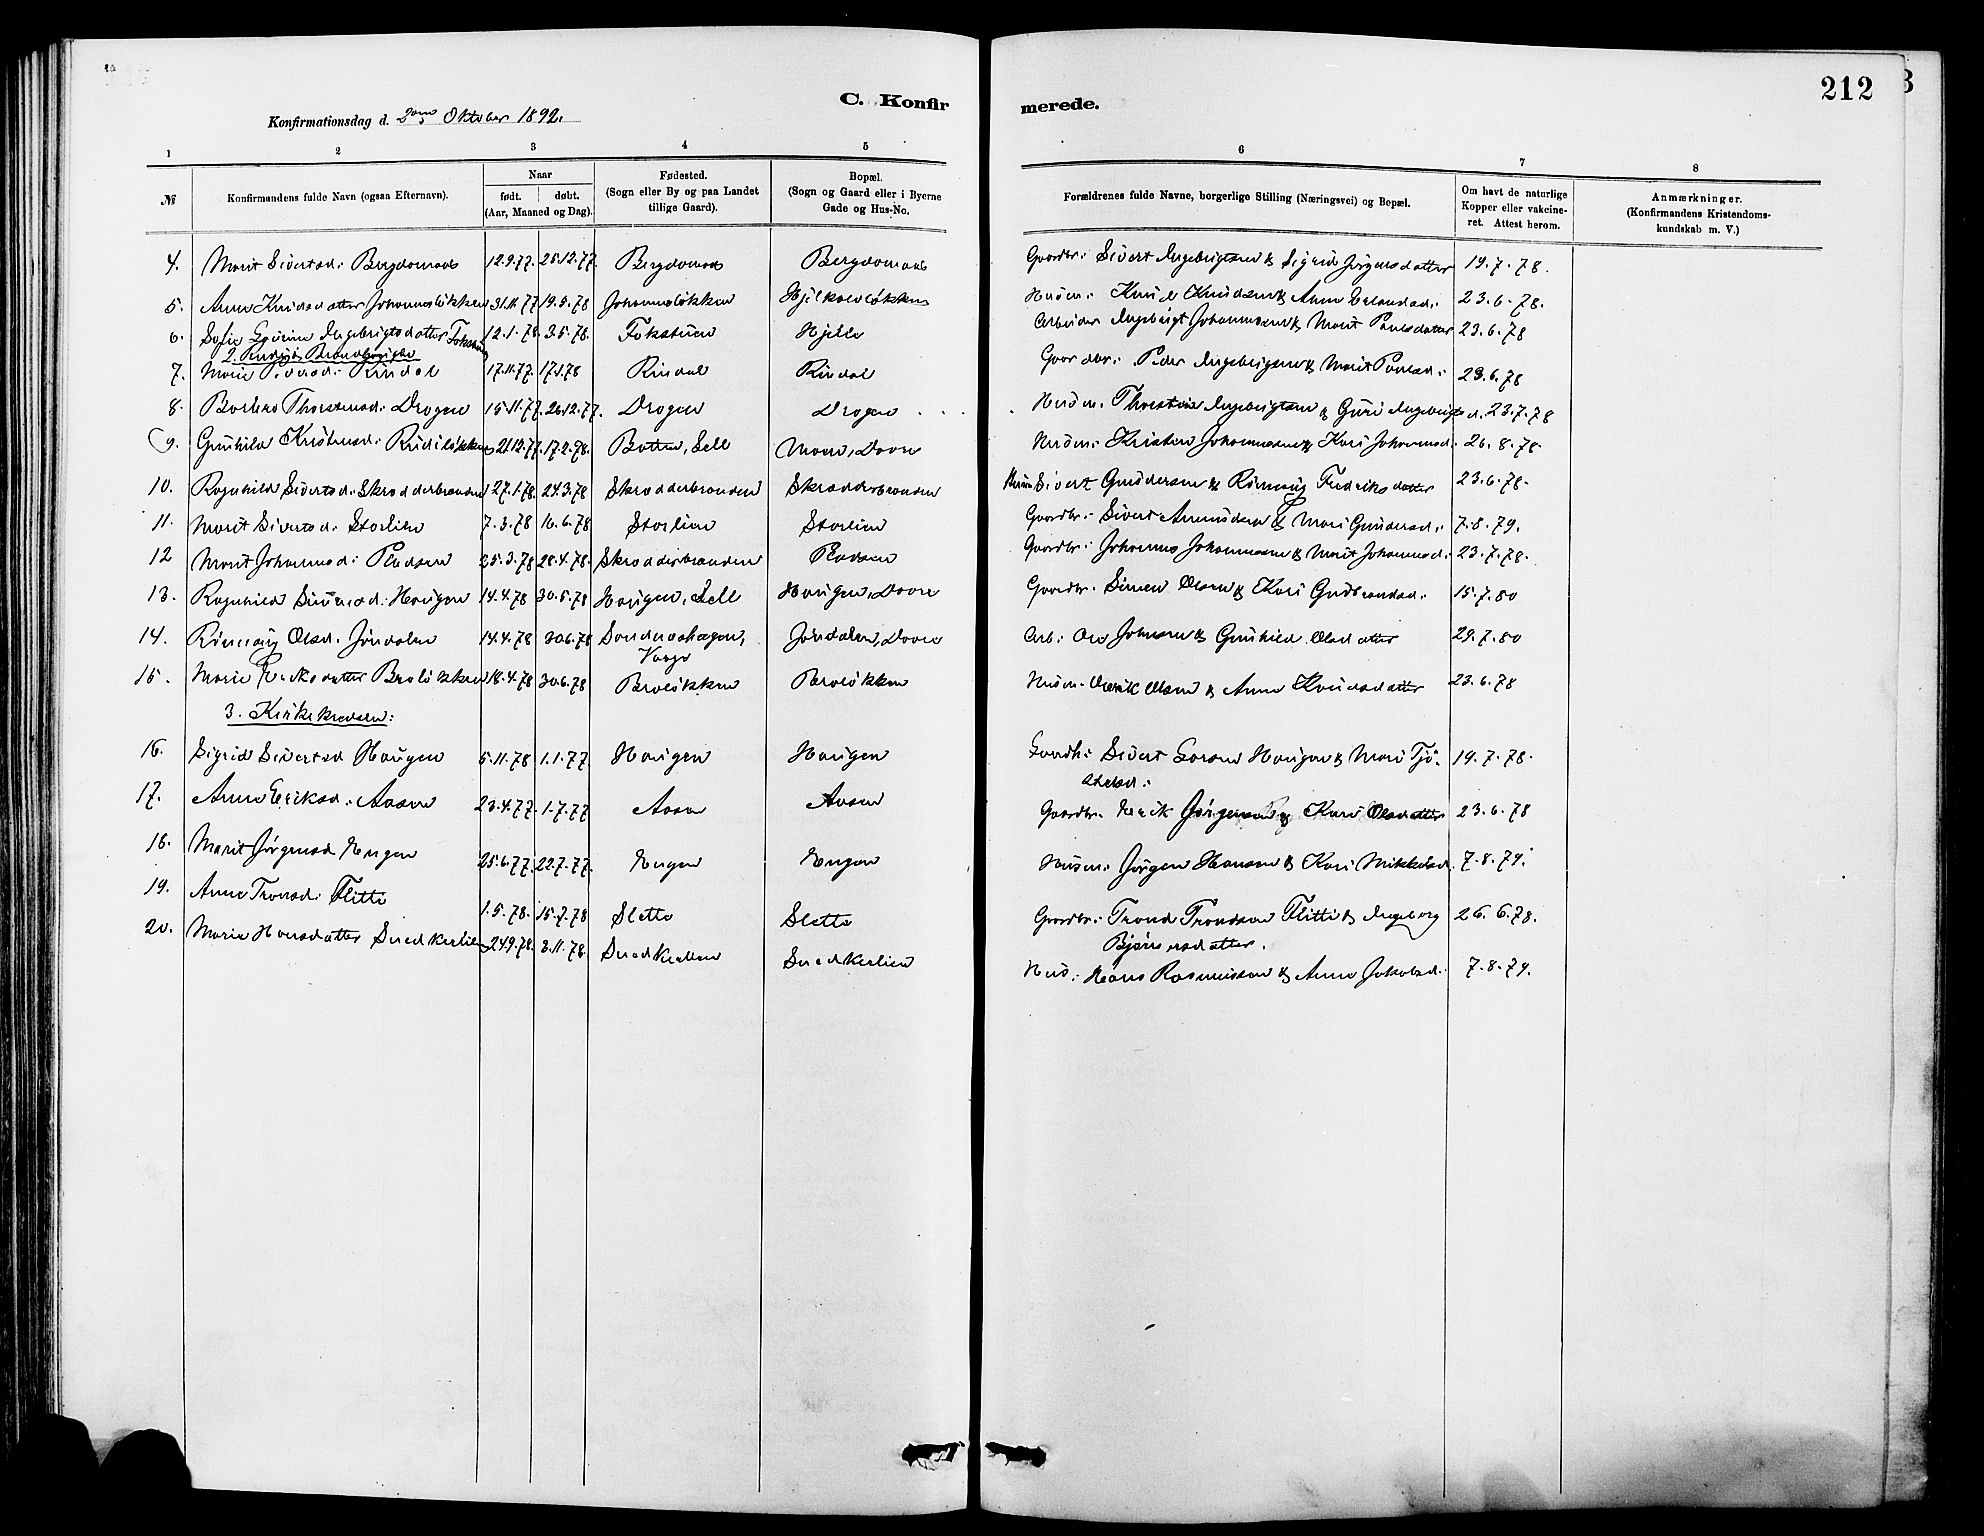 C. Konfirmerede.
212
Konfirmationsdag d. 2den Oktober 1892.
1 2 3 4 5 6 7 8
№ Konfirmandens fulde Navn (ogsaa Efternavn). Naar født. døbt. (Aar, Maaned og Dag). Fødested. (Sogn eller By og paa Landet tillige Gaard). Bopæl. (Sogn og Gaard eller i Byerne Gade og Hus-No. Forældrenes fulde Navne, borgerlige Stilling (Næringsvei) og Bopæl. Om havt de naturlige Kopper eller vakcineret. Attest herom. Anmærkninger. (Konfirmandens Kristendomskundskab m. V.)
4. Marit Sivertsd: Bergdomaas 12.9.77. 26.12.77. Bergdomaas Bergdomaas Gaardbr: Sivert Ingebrigtsen & Sigrid Jørgensdatter 19.7.78.
5. Anne Knudsdatter Johannesløkken 31.11.77 19.5.78 Johannesløkken Knud Knudsen & Anne Erlandsd: 23.6.78.
6. Sofie Ingebrigtsdatter Fokstuen 12.1.78. 3.5.78. Fokstuen Hjelle Arbeider Ingebrigt Johannesen & Marit Paulsdatter 23.6.78
2.
7. Marie Pedersd: Rindal 17.11.77. 17.1.78 Rindal Rindal Gaardbr: Peder Ingebrigtsen & Marit Paulsd: 23.6.78
8. Barbro Thorstensd: Drogen 15.11.77. 26.12.77. Drogen Drogen Husm: Thorstein Ingebrigtsen & Guri Ingebrigtsd. 23.7.78
9. Gunhild Kristensd: Rudiløkken 21.12.77. 17.2.78. Botten, Sell Moen, Dovre Husm: Kristen Johannesen & Kari Johannesd: 26.8.78
10. Ragnhild Sivertsd: Skrædderbranden 27.1.78. 24.3.78 Skrædderbranden Skrædderbranden Husm Sivert Gundersen & Rønnaug Fredriksdatter 23.6.78.
11. Marit Sivertsd: Storlien 7.3.78 16.6.78 Storlien Storlien Gaardbr: Sivert Amundsen & Mari Gundersd: 7.8.79.
12 Marit Johannesd: Pladsen 25.3.78 28.4.78. Skrædderbranden Pladsen Gaardbr: Johannes Johannesen & Marit Johannesd: 23.7.78.
13. Ragnhild Simensd: Haugen 14.4.78 30.5.78 Haugen, Sell Haugen, Dovre Gaardbr: Simen Olsen & Kari Gudbrandsd: 15.7.80
14. Rønnaug Olsd: Jøndalen 14.4.78 30.6.78 Søndneshagen, Vaage Jøndalen, Dovre Arb: Ole Johnsen & Gunhild Olsdatter 29.7.80
15. Marie Eriksdatter Broløkken 18.4.78 30.6.78 Broløkken Broløkken Husm. Erik Olsen & Anne Knudsdatter 23.6.78
3. Kirkekredsen:
16. Sigrid Sivertsd Haugen 5.11.78 1.1.77. Haugen Haugen Gaardb: Sivert Larsen Haugen & Mari Tjøstelsd: 19.7.78.
17. Anne Eriksd: Aasen 23.4.77. 1.7.77 Aasen Aasen Gaardbr. Erik Jørgensen & Kari Olsdatter 23.6.78
18. Marit Jørgensd Engen 25.6.77. 22.7.77. Engen Engen Husm: Jørgen Hansen & Kari Mikkelsd. 7.8.79.
19. Anne Tronsd: Flitti 1.5.78. 15.7.78 Slette Slette Gaardbr: Trond Trondsen Flitti & Ingeborg Bjørnersdatter. 26.6.78.
20. Marie Hansdatter Snedkerlien 24.9.78. 3.11.78. Snedkerlien Snedkerlien Hus: Hans Rasmussen & Anne Jakobsd: 7.8.79.